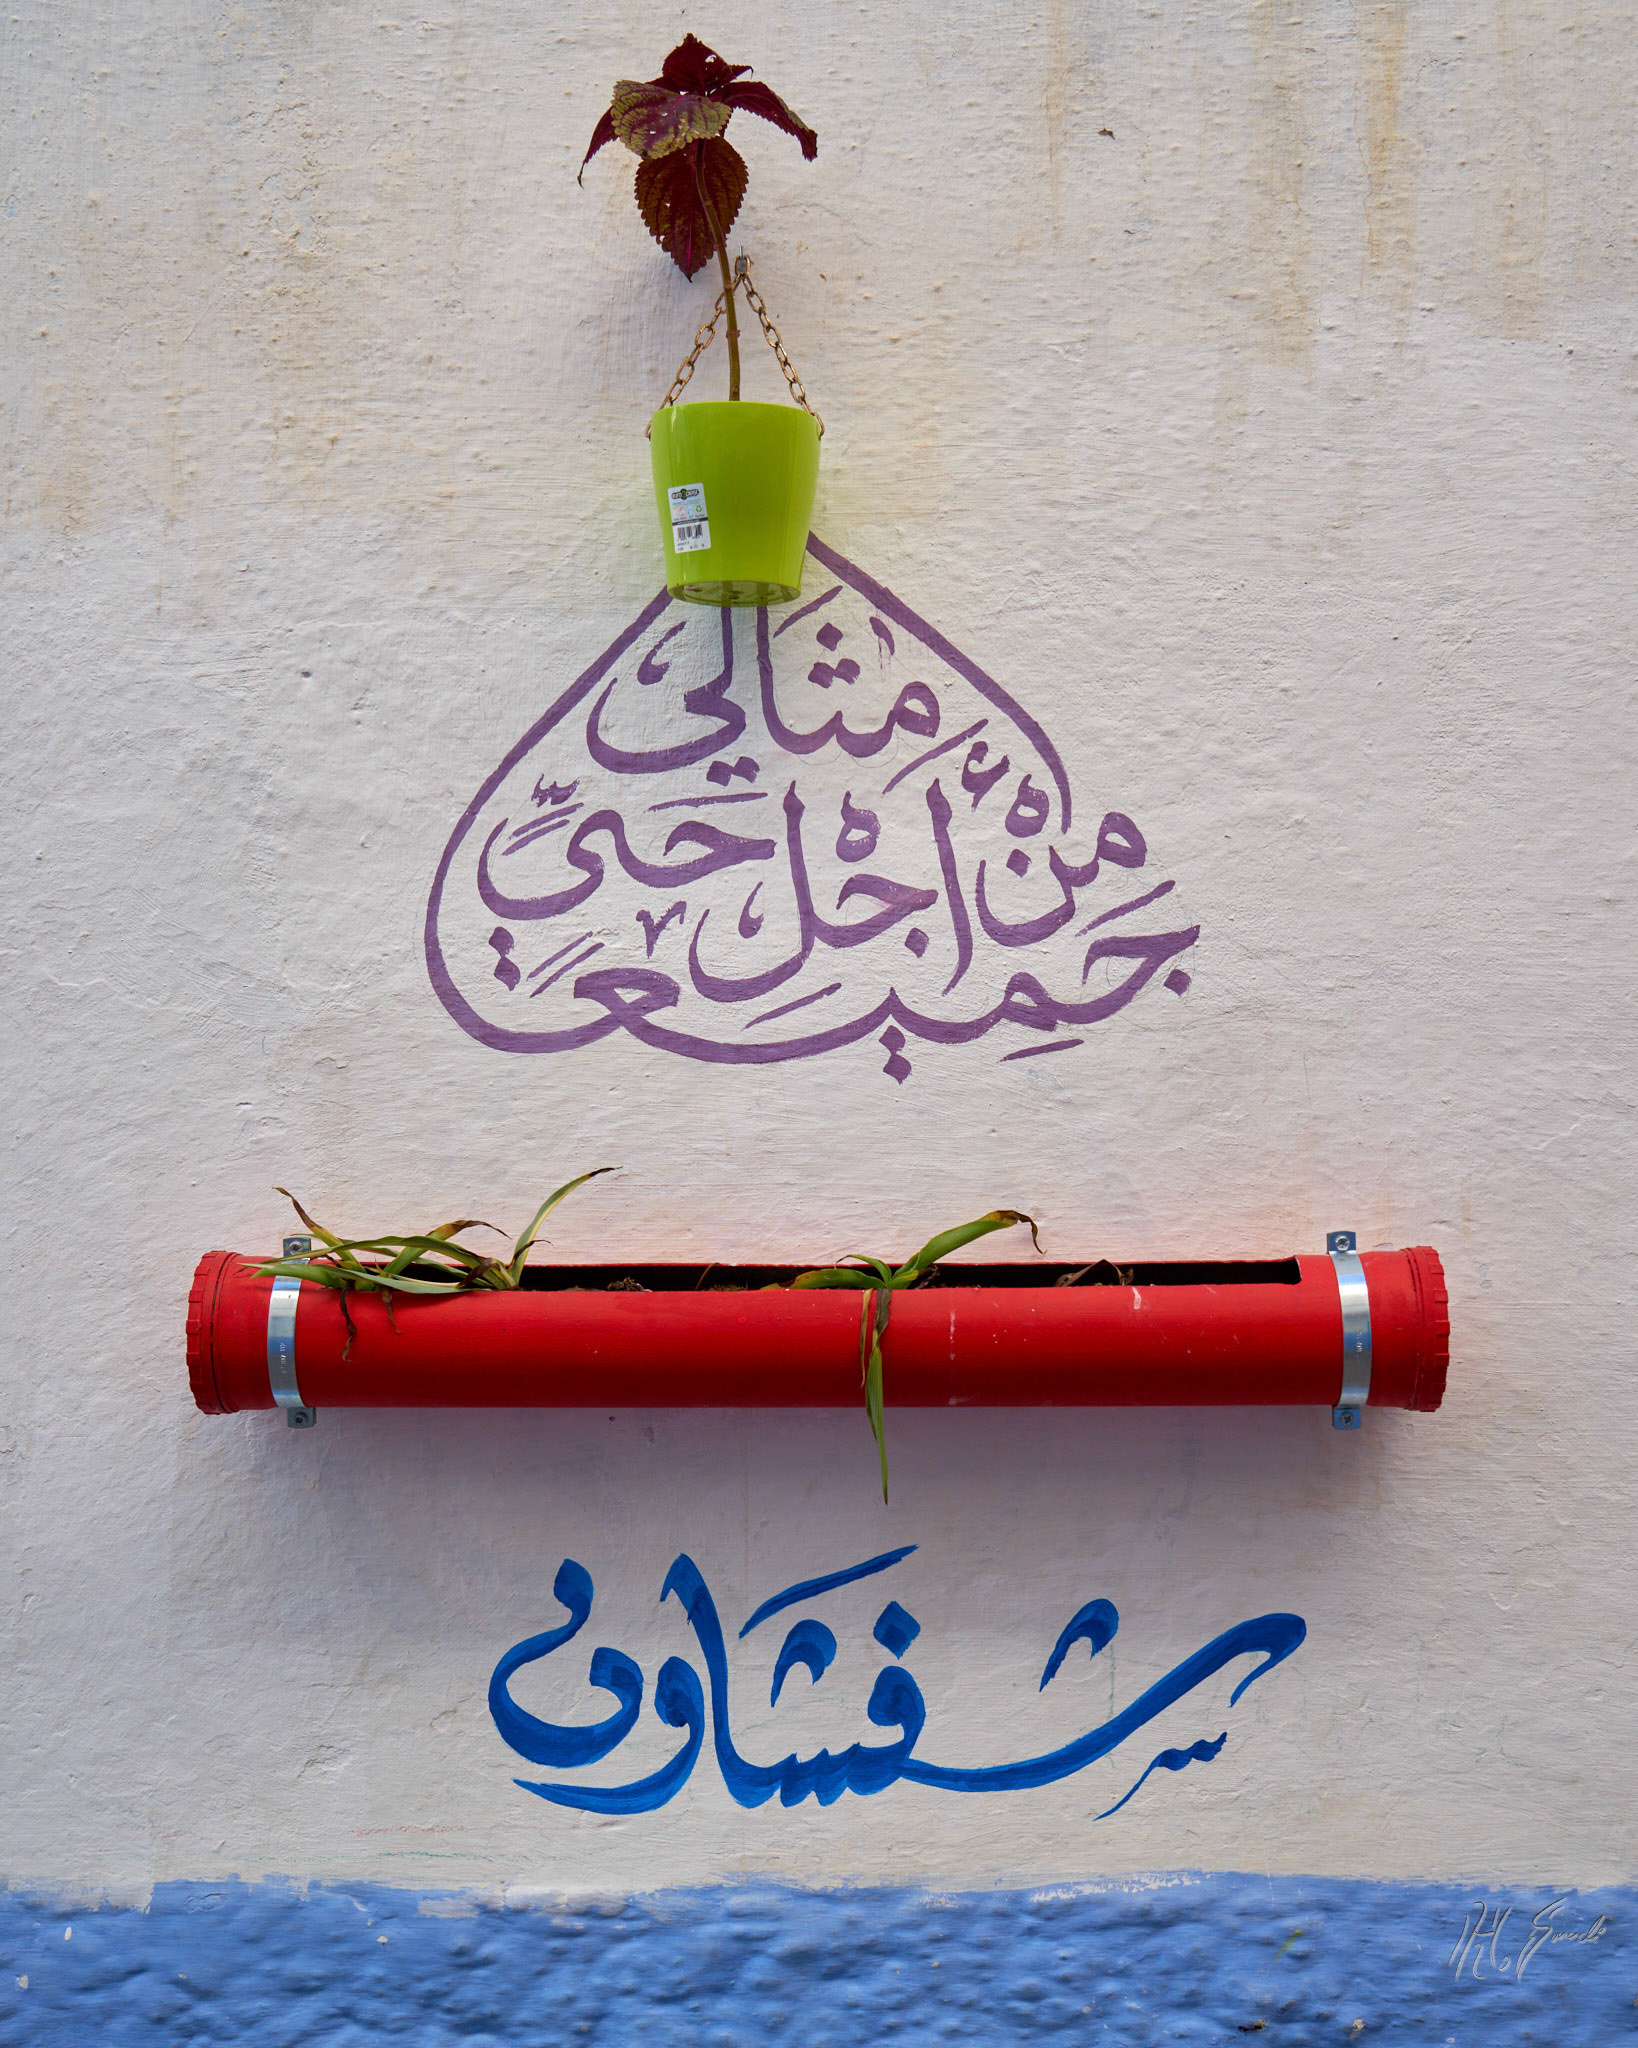 جَمِيعًا
مِنْ أَجْلِ حَيٍّ
مِثَالي
شفشاون